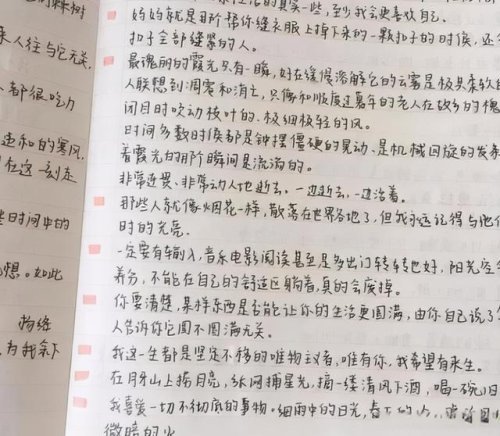 人往与它无关,
都很吃力
造和的寒风,
在这一刻走
些时间中的
想。如此
拘络
为我剩下
的真实一些,至少我会更喜欢自己。
妈妈就是那个帮你缝衣服上掉下来的一颗扣子的时候,还
扣子全部缝紧的人。
最瑰丽的霞光只有一瞬,好在缓慢溶解它的云雾是极其柔软
人联想到凋零和消亡,只像和顺度过暮年的老人在故乡的槐
闭目时吹动枝叶的、极细极轻的风。
时间多数时候都是钟摆僵硬的晃动、是机械回旋的发条
看霞光的那个瞬间是流淌的。
非常连畏、非常动人地逝去。一边逝去,一边活着。
那些人就像烟花一样,散落在世界各地了,但我永远记得与他
时的光亮。
一定要有输入,音乐电影阅读甚至是多出门转转也好,阳光空
养分,不能在自己的舒适区躺着,真的会废掉。
你要清楚,某样东西是否能让你的生活更圆满,由你自己说了
人告诉你它圆不圆满无关。
我这一生都是坚定不移的唯物主义者,唯有你,我希望有来生。
在月牙山上捞月亮,纵网捕星光,摘一缕清风下酒,喝一碗
我喜爱一切不彻底的事物。细雨中的日光,春
微暗的火